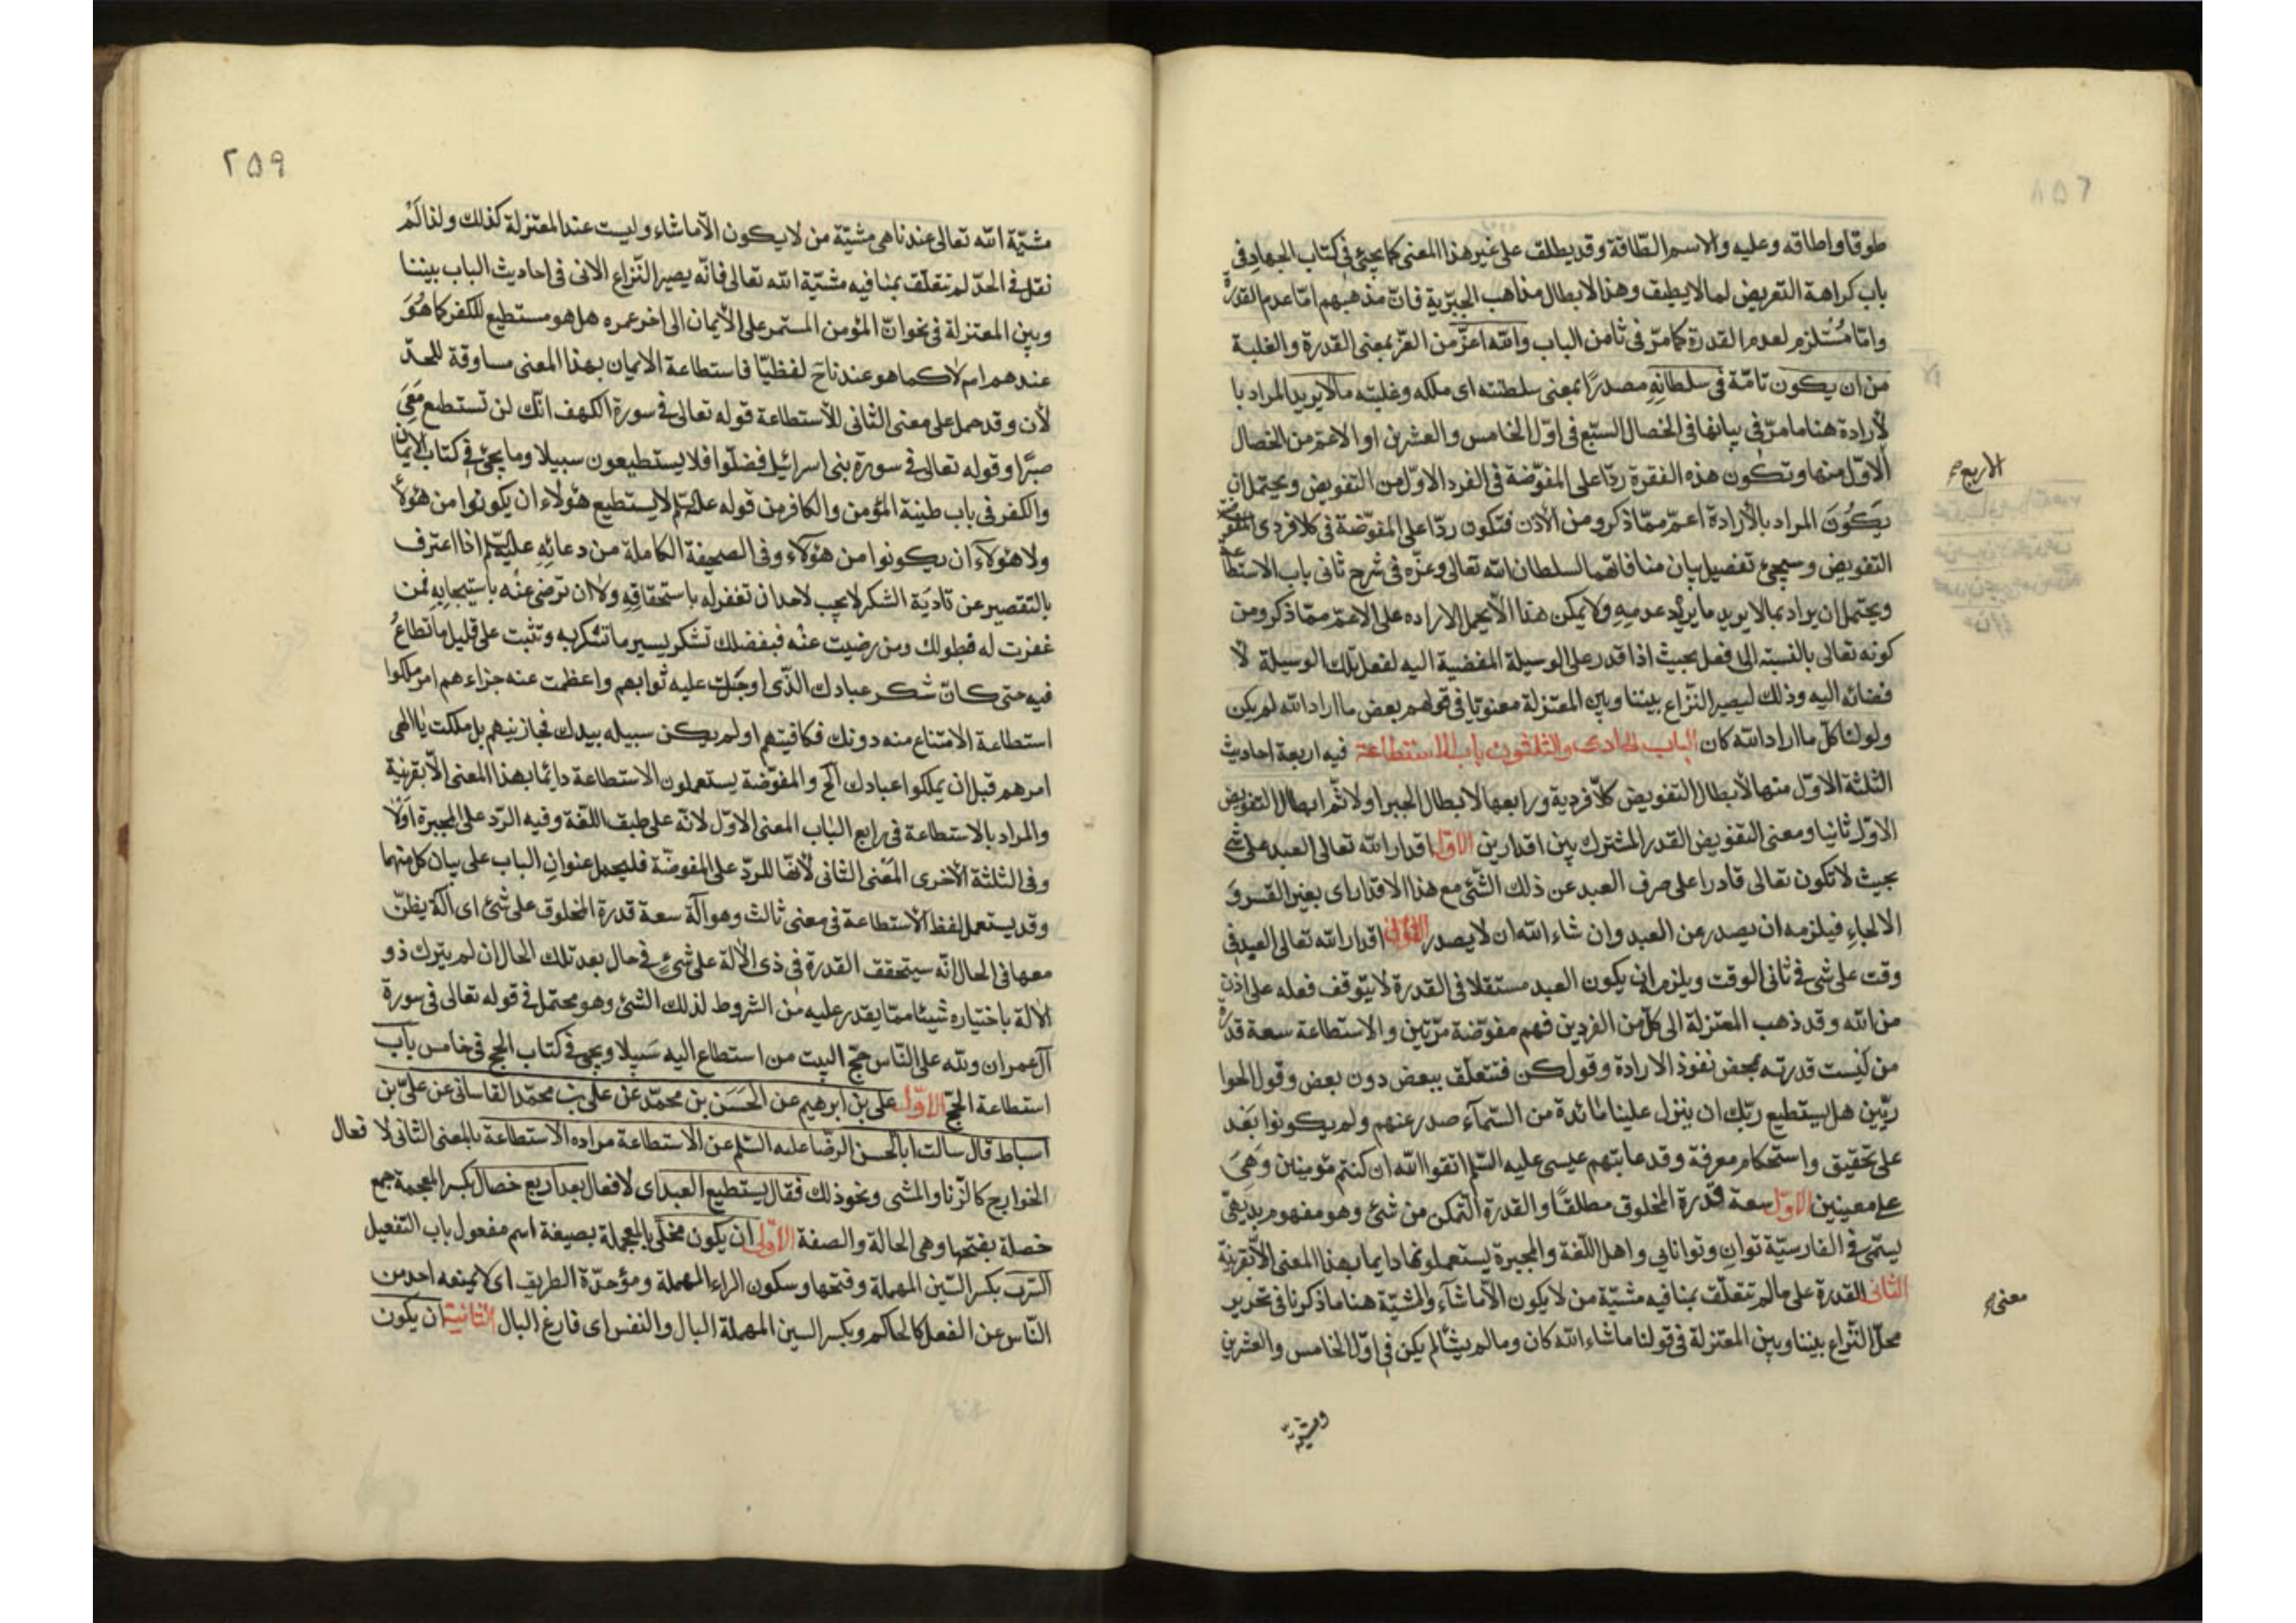 طوقا واطاقه وعليه والاسم الطّاقة وقد يطلق على غير هذا المعنى كما يجئ في كتاب الجهاد في
باب كراهة التعريض لما لا يطيق وهذا لابطال مذاهب الجبرية فانّ مذهبهم امّا عدم القدرة
وامّا مُستلزم لعدم القدرة كما مرّ في ثامن الباب والله اعزّ من العزّ بمعنى القدرة والغلبة
من ان يكون تامّة في سلطانِهِ مصدرًا بمعنى سلطنته اى ملكه وغلبته مالا يريد المراد با
لأرادة هنا ما مرّ في بيانها في الخصال السّبع في اوّل الخامس والعشرين او الاعمّ من الخصال
الاربع
الاوّل منها وتكون هذه الفقرة ردّا على المفوّضة في الفرد الاوّل من التفويض ويحتمل ان
يَكُونَ المراد بالأرادة اعمّ ممّا ذكر ومن الأذن فتكون ردّا على المفوّضة في كلا فردى
التفويض وسيجئ تفصيل بيان منافاتهما لسلطان الله تعالى وعزّه في شرح ثانى باب الاستطاعة
ويحتمل ان يراد بما لا يريد ما يريد عدمه ولا يمكن هذا الّا بحمل الاراده على الاعمّ ممّا ذكر ومن
كونه تعالى بالنسبة الى فعل بحيث اذا قدر على الوسيلة المفضية اليه لفعل تلك الوسيلة لا
فضائه اليه وذلك ليصير النّزاع بيننا وبين المعتزلة معنويّا في قولهم بعض ما اراد الله لم يكن
وقولنا كلّ ما اراد الله كان الباب الحادى والثلثون باب الاستطاعة فيه اربعة احاديث
الثلثة الاوّل منها لأبطال التفويض كلّا فرديه ورابعها لابطال الجبر اولا ثمّ ابطال التفويض
الاوّل ثانيا ومعنى التفويض القدر المشترك بين اقدارين الاوّل اقدار الله تعالى العبد على شئ
بحيث لا تكون تعالى قادرا على صرف العبد عن ذلك الشّئ مع هذا الاقدار اى بغير القسر و
الالجاءِ فيلزمه ان يصدر عن العبد وان شاء الله ان لا يصدر الثّانى اقدار الله تعالى العبد في
وقت على شئ في ثانى الوقت ويلزم ان يكون العبد مستقلا في القدرة لا يتوقف فعله على اذن
من الله وقد ذهب المعتزلة الى كلّ من الفردين فهم مفوّضة مرّتين والاستطاعة سعة قدرة
من ليست قدرته بمحض نفوذ الارادة وقول كن فتتعلّق ببعض دون بعض وقول الحوا
ريّين هل يستطيع ربّك ان ينزل علينا مائدة من السّمآء صدر عنهم ولم يكونوا بَعْد
على تحقيق واستحكام معرفة وقد عابتهم عيسى عليه السّلم اتقوا الله ان كنتم مؤمنين وَهِيَ
على معنيين الاوّل سعة قدرة المخلوق مطلقًا والقدرة التمكن من شئ وهو مفهوم بديهىّ
يسمّى في الفارسيّة توان وتوانايى واهل اللّغة والمجبرة يستعملونها دايما بهذا المعنى الّا بقرينة
معنى
الثانى القدرة على مالم تتعلّق بمنافيه مشيّة من لا يكون الّا ما شآء والمشيّة هنا ما ذكرنا في تحرير
محلّ النّزاع بيننا وبين المعتزلة في قولنا ما شاء الله كان وما لم يشأ لم يكن في اوّل الخامس والعشرين
ومشيّة
٢٥٩
مشيّة الله تعالى عندنا هى مشيّة من لا يكون الّا ما شاء وليست عند المعتزلة كذلك ولذا لَمْ
نقل في الحدّ لم تتعلّق بمنافيه مشيّة الله تعالى فانّه يصير النّزاع الاتى في احاديث الباب بيننا
وبين المعتزلة في نحو انّ المؤمن المستمر على الأيمان الى اخر عمره هل هو مستطيع للكفر كما هُوَ
عندهم ام لا كما هو عندنا ح لفظيّا فاستطاعة الايمان بهذا المعنى مساوقة للحدّ
لأن وقد حمل على معنى الثّانى للأستطاعة قوله تعالى في سورة الكهف انّك لن تستطيع مَعِيَ
صبرًا وقوله تعالى في سورة بنى اسرائيل فضلّوا فلا يستطيعون سبيلا وما يجئ في كتاب الايمان
والكفر في باب طينة المؤمن والكافر من قوله عليه السّلم لا يستطيع هؤلاء ان يكونوا من هؤلاء
ولا هؤلاء ان يكونوا من هؤلاء وفى الصحيفة الكاملة من دعائِهِ عليه السّلم اذا اعترف
بالتقصير عن تاديَة الشكر لا يجب لاحد ان تغفر له باستحقاقِهِ ولا ان ترضى عنْه باستيجابِهِ فمن
غفرت له فبطولك ومن رضيت عنْه فبفضلك تشكر يسير ما تشكر به وتثبت على قليل ما تطاعُ
فيه حتى كانّ شكر عبادك الّذى اوجَبْت عليه ثوابهم واعظمت عنه جزاءهم امر ملكوا
استطاعة الامتناع منه دونك فكافيتهم او لم يكن سببله بيدك فجازيتهم بل ملكت يا الهى
امرهم قبل ان يملكوا عبادك الخ والمفوّضة يستعملون الاستطاعة دايمًا بهذا المعنى الّا بقرينة
والمراد بالاستطاعة في رابع الباب المعنى الاوّل لانّه على طبق اللّغة وفيه الرّد على المجبرة اوّلا
وفى الثلثة الأخرى المَعْنى الثّانى لأنّها للردّ على المفوضّة فليحمل عنوان الباب على بيان كل منهما
وقد يستعمل لفظ الأستطاعة في معنى ثالث وهو آلة سعة قدرة المخلوق على شئ اى آلة يظنّ
معها في الحال انّه سيتحقق القدرة في ذى الألة على شئ في حال بعد تلك الحال ان لم يترك ذو
الألة باختياره شيئا ممّا يقدر عليه من الشروط لذلك الشئ وهو محتمل في قوله تعالى في سورة
آل عمران ولله على النّاس حجّ البيت من استطاع اليه سَبيلا ويجئ في كتاب الحج في خامس باب
استطاعة الحجّ الاوّل على بن ابرهيم عن الحَسَن بن محمّد عن على بن محمّد القاسانى عن علىّ بن
اسباط قال سالت ابا الحسن الرضّا عليه السّلم عن الاستطاعة مراده الاستطاعة بالمعنى الثانى لا فعال
الخوارج كالزّنا والمشى ونحو ذلك فقال يستطيع العبد اى لافعال بعد اربع خصال بكسر المعجمة جمع
خصلة بفتحها وهى الحالة والصفة الأولى ان يكون مخلّى بالمعجملة بصيغة اسم مفعول باب التفعيل
السّرب بكسر السّين المهملة وفتحها وسكون الراء المهملة ومؤحدّة الطريق اى لا يمنعه احد من
النّاس عن الفعل كالحاكم وبكسر السين المهملة البال والنفس اى فارغ البال الثانية ان يكون